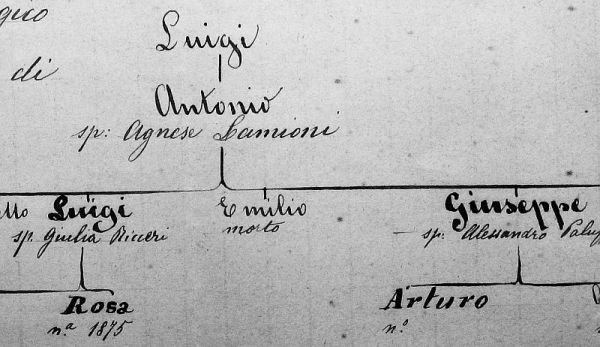 Luigi
di
Antonio
sp: Agnese Lamioni
Luigi
Emilio
Giuseppe
sp. Giulia Ricceri
morto
sp: Alessandro
Rosa
Arturo
n.a 1875
n.o